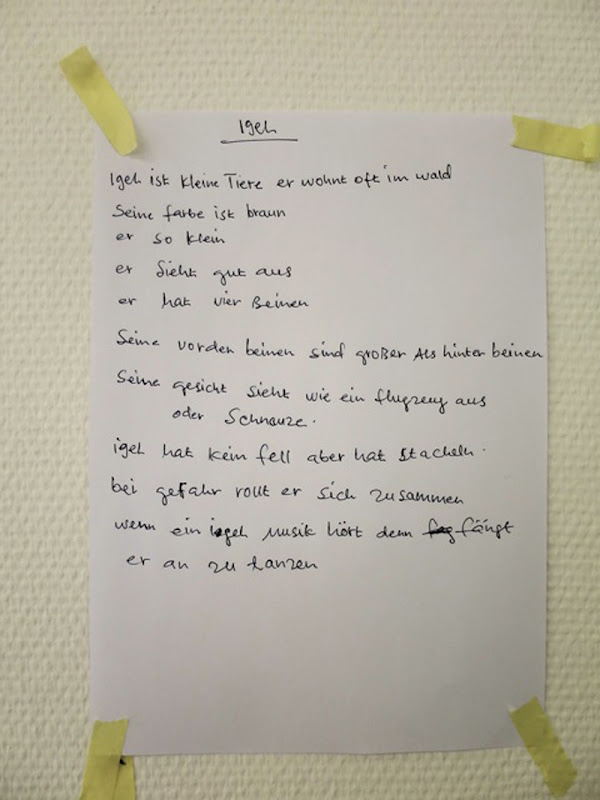 Igel
Igel ist kleine Tiere er wohnt oft im wald
Seine farbe ist braun
er so klein
er sieht gut aus
er hat vier Beinen
Seine vorden beinen sind großer Als hinter beinen
Seine gesicht sieht wie ein flugzeug aus
oder Schnauze.
igel hat kein fell aber hat stacheln.
bei gefahr rollt er sich zusammen
wenn ein igel Musik hört denn fängt
er an zu tanzen